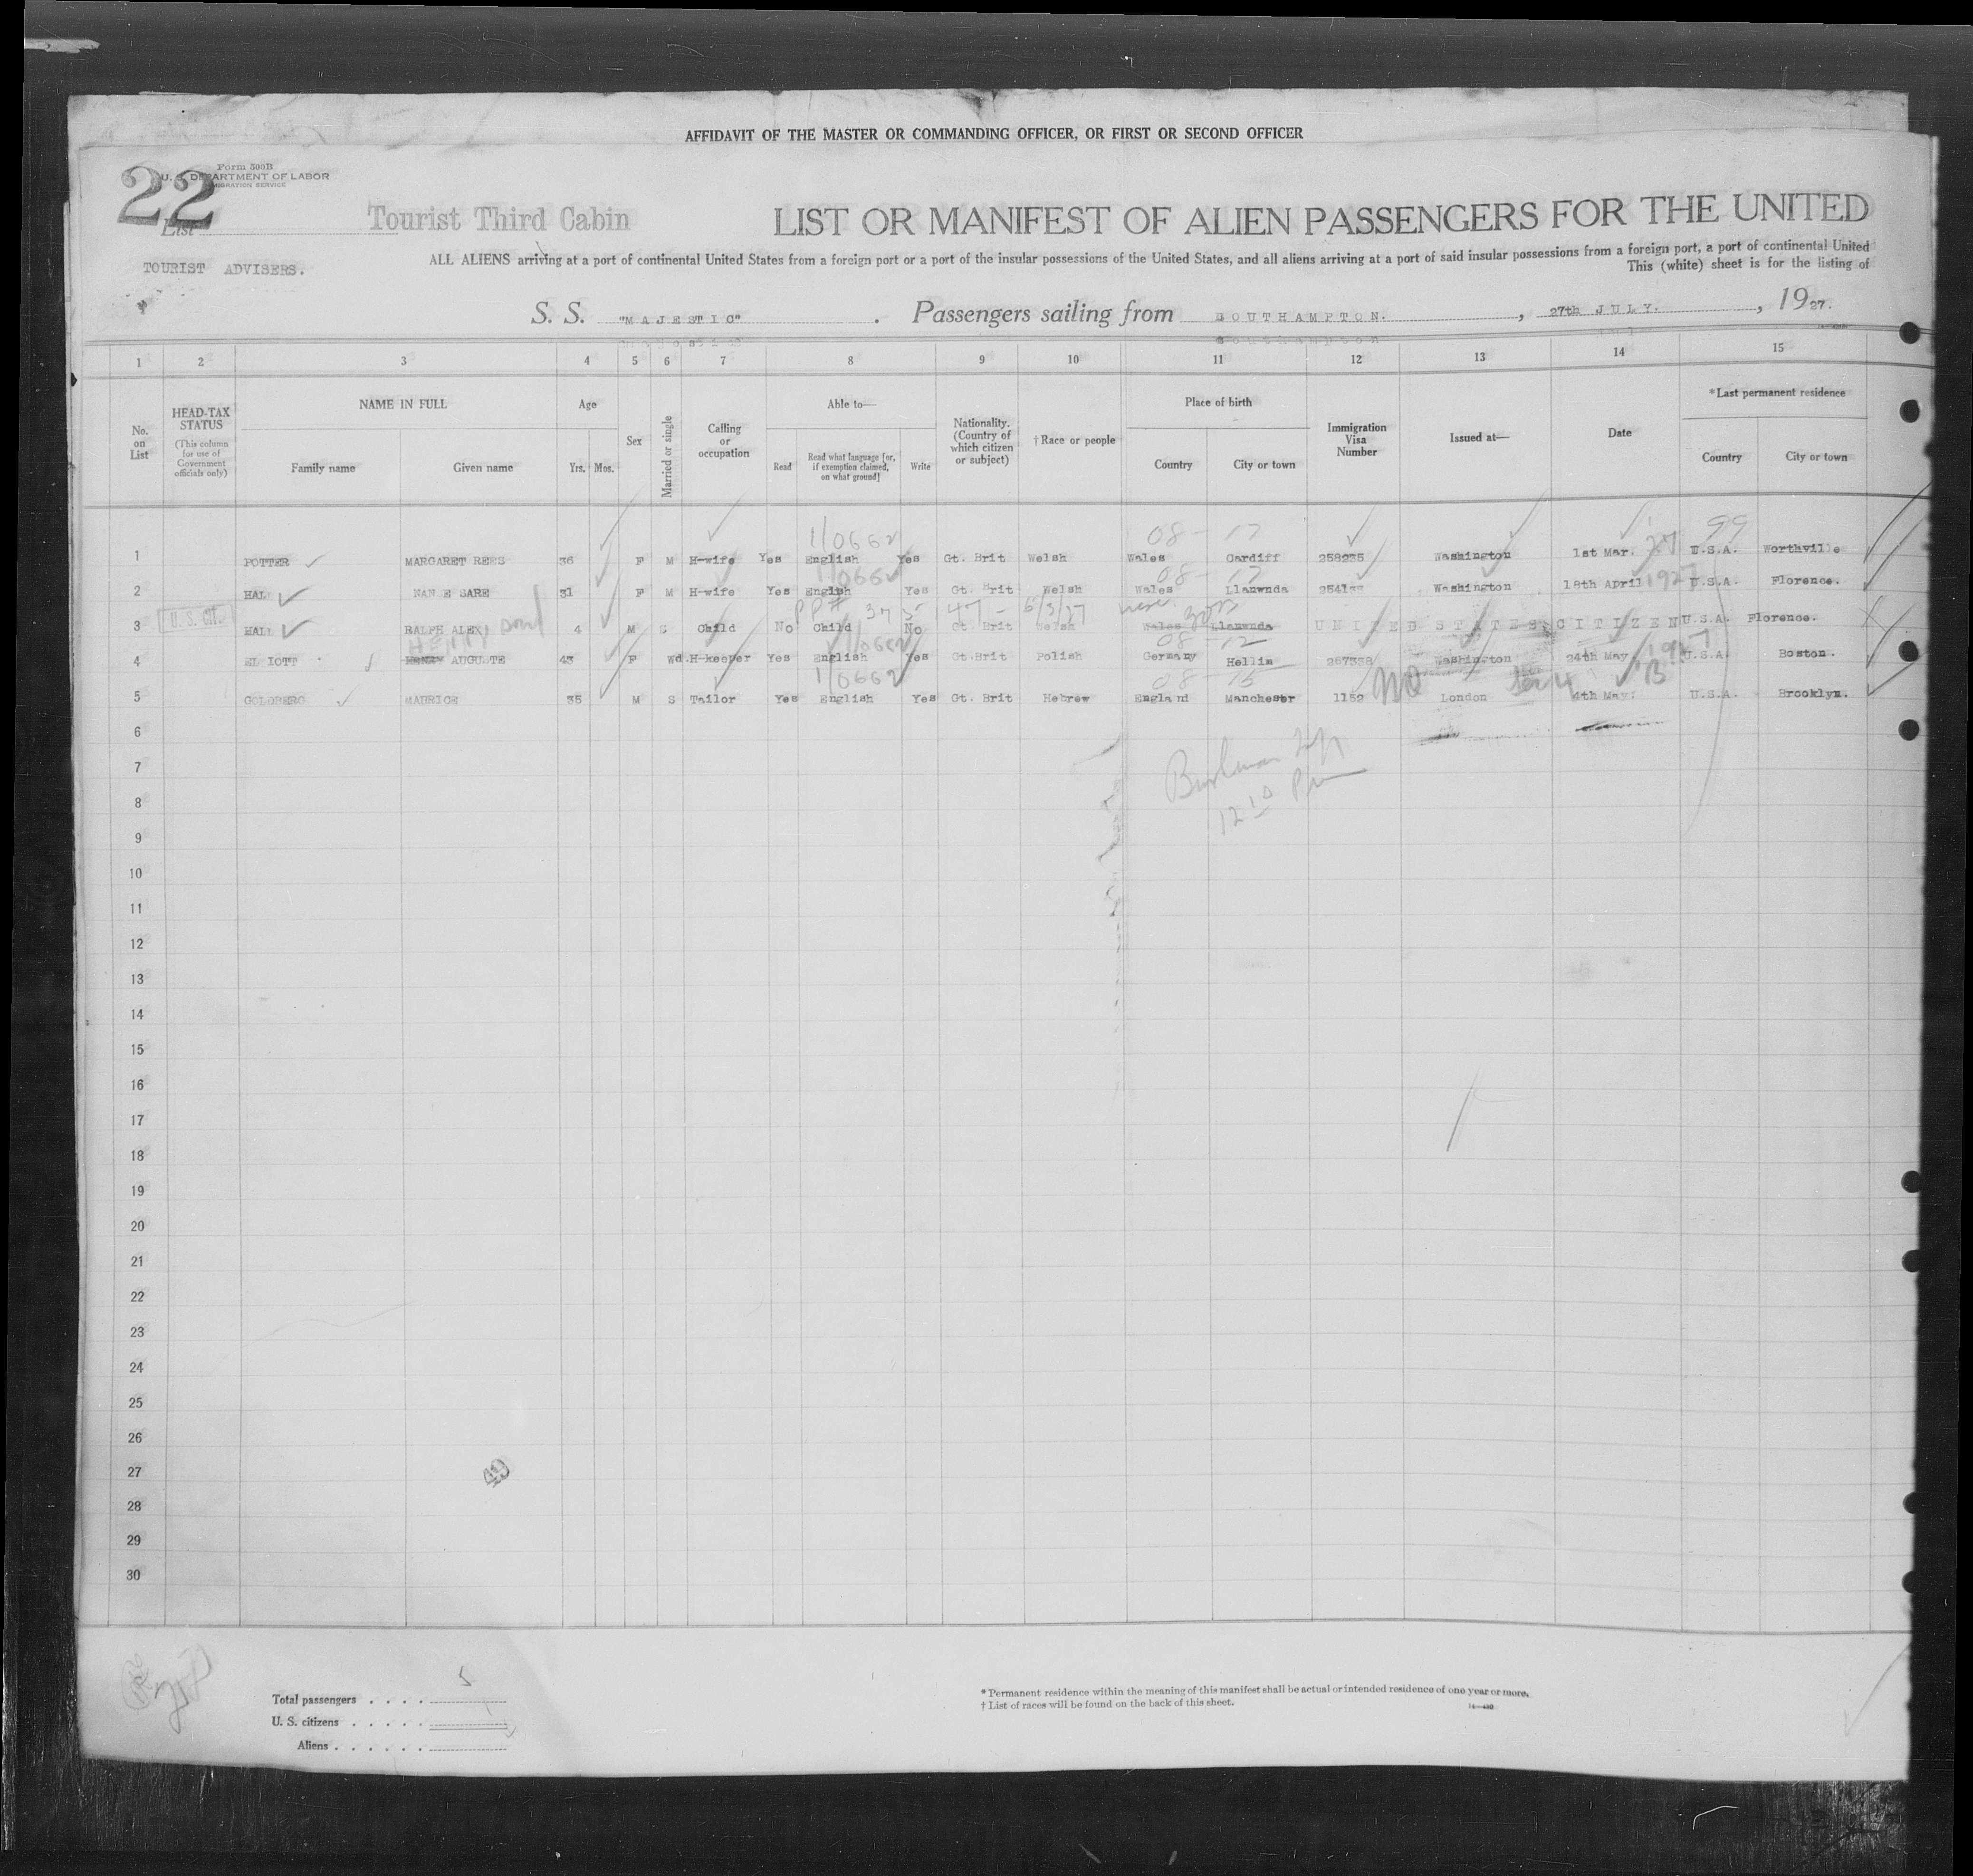 AFFIDAVIT OF THE MASTER OR COMMANDING OFFICER, OR FIRST OR SECOND OFFICER
22
Form 500B
U. S. DEPARTMENT OF LABOR
IMMIGRATION SERVICE
List
Tourist Third Cabin
LIST OR MANIFEST OF ALIEN PASSENGERS FOR THE UNITED
TOURIST ADVISERS.
ALL ALIENS arriving at a port of continental United States from a foreign port or a port of the insular possessions of the United States, and all aliens arriving at a port of said insular possessions from a foreign port, a port of continental United
This (white) sheet is for the listing of
S. S. "MAJESTIC". Passengers sailing from SOUTHAMPTON., 27th JULY., 1927.
1 2 3 4 5 6 7 8 9 10 11 12 13 14 15
No. on List
HEAD-TAX STATUS (This column for use of Government officials only)
NAME IN FULL
Family name Given name
Age
Yrs. Mos.
Sex
Married or single
Calling or occupation
Able to—
Read
Read what language [or, if exemption claimed, on what ground]
Write
Nationality. (Country of which citizen or subject)
† Race or people
Place of birth
Country City or town
Immigration Visa Number
Issued at—
Date
*Last permanent residence
Country City or town
1/0662 08 - 17 99
1 POTTER MARGARET REES 36 F M H-wife Yes English Yes Gt. Brit Welsh Wales Cardiff 258235 Washington 1st Mar. 27 U.S.A. Worthville
1/0662 08 - 17
2 HALL 31 F M H-wife Yes English Yes Gt. Brit Welsh Wales Llanwnda Washington 18th April 1927 U.S.A. Florence.
U.S. Cit.
3 HALL RALPH ALEX 4 M S Child No Child No Gt Brit Welsh Wales Llanwnda UNITED STATES CITIZEN U.S.A. Florence.
HENRY 1/0662 08 - 12
4 ELLIOTT HENRY AUGUSTE 43 F Wd. H-keeper Yes English Yes Gt.Brit Polish Germany Hellim 267338 Washington 24th May 1927 U.S.A. Boston.
1/0662 08 - 15
5 GOLDBERG MAURICE 35 M S Tailor Yes English Yes Gt. Brit Hebrew England Manchester 1152 London 4th May. U.S.A. Brooklyn.
6
7
8
9
10
11
12
13
14
15
16
17
18
19
20
21
22
23
24
25
26
27
49
28
29
30
Total passengers . . . . 5
U. S. citizens . . . . .
Aliens . . . . . .
* Permanent residence within the meaning of this manifest shall be actual or intended residence of one year or more.
† List of races will be found on the back of this sheet.